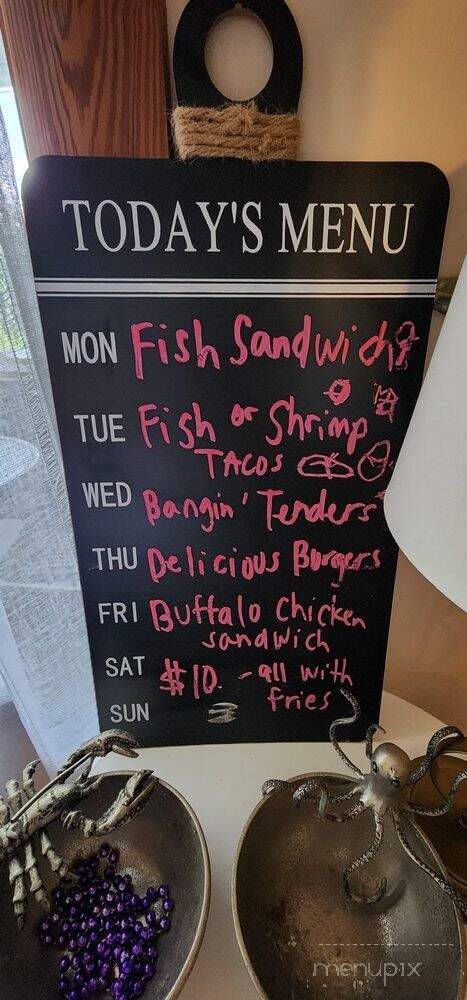 TODAY'S MENU
MON Fish Sandwich
TUE Fish or Shrimp
TACOS
WED Bangin' Tenders
THU Delicious Burgers
FRI Buffalo Chicken
sandwich
SAT $10. - all with
fries
SUN
menupix